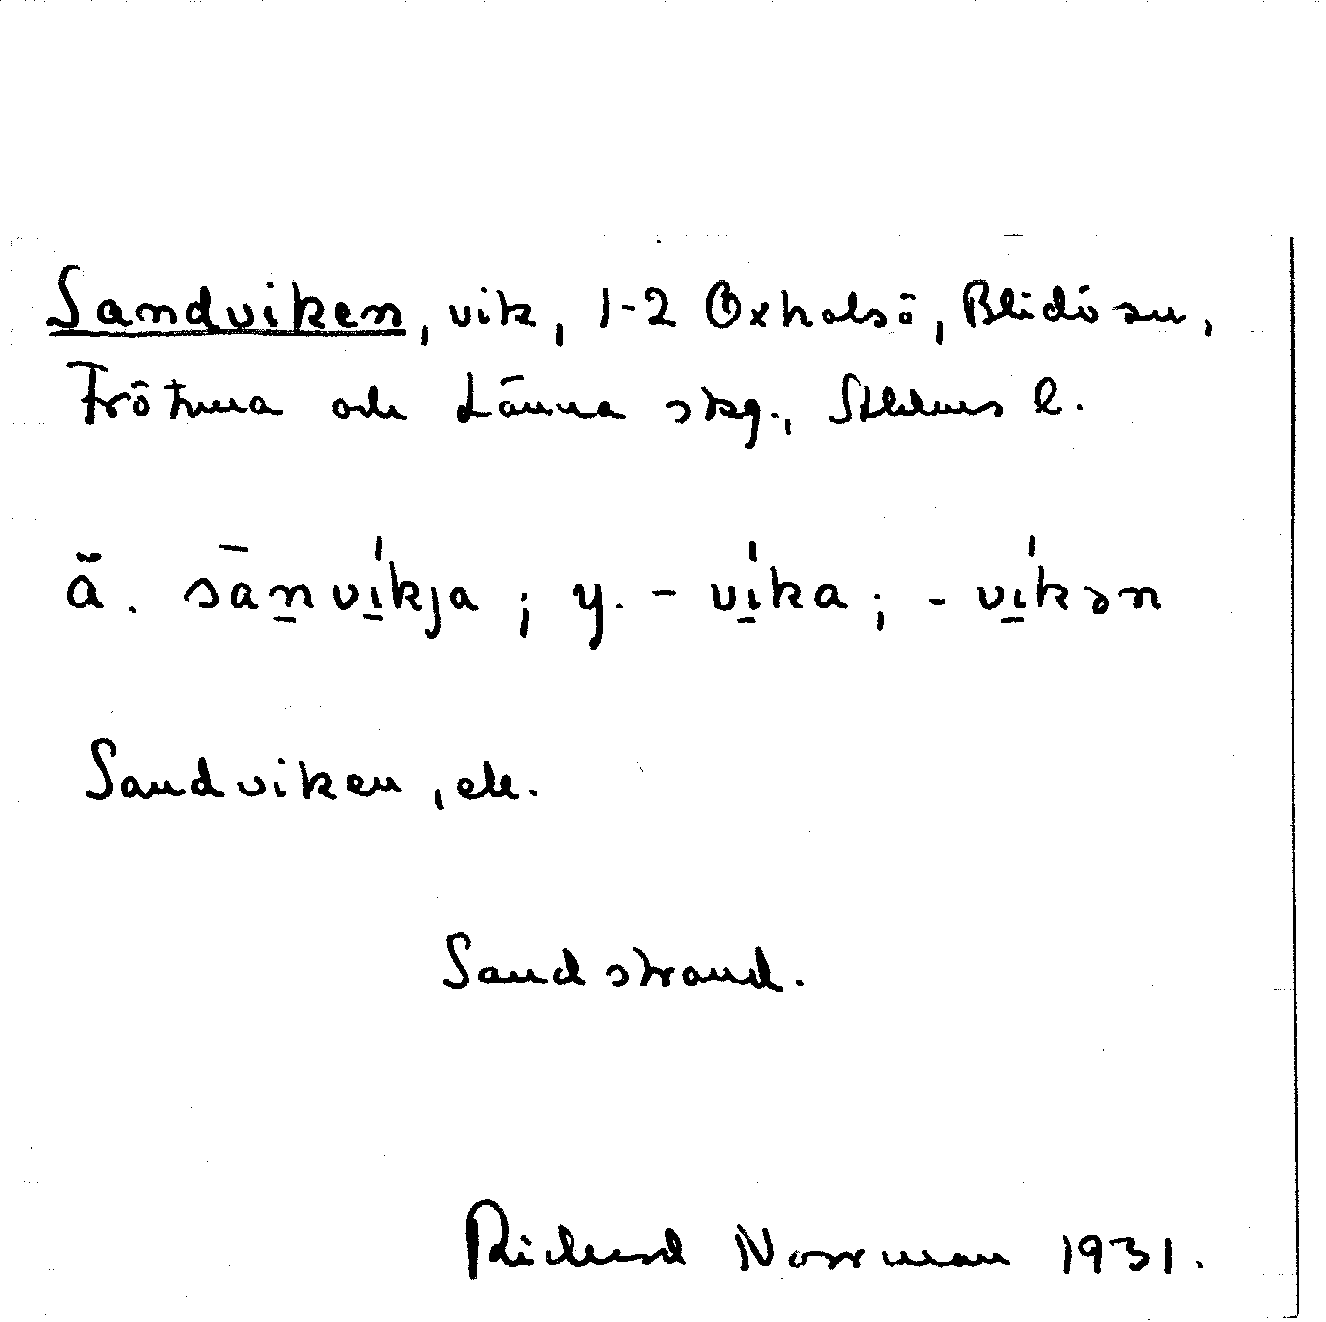 Sandviken, vik, 1-2 Oxhalsö, Blidö sn,
Frötuna och Länna skg., Sthlms l.
ä. sānvi̱kja; y. -vi̱ka; -vi̱kən
Sandviken, ek.
Sandstrand.
Richard Norrman 1931.